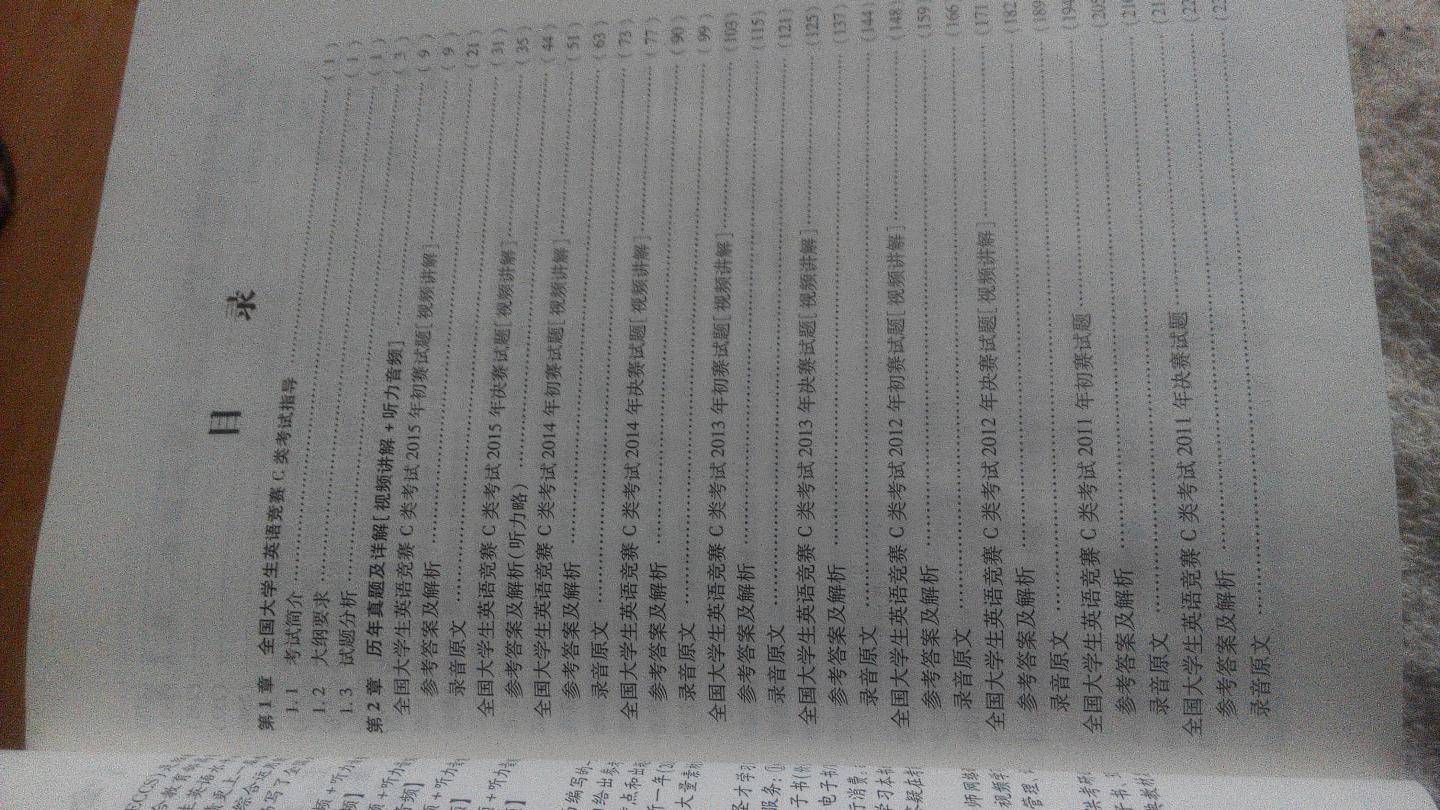 目 录
第1章 全国大学生英语竞赛C类考试指导 (1)
1.1 考试简介 (1)
1.2 大纲要求 (1)
1.3 试题分析 (3)
第2章 历年真题及详解[视频讲解+听力音频] (9)
全国大学生英语竞赛C类考试2015年初赛试题[视频讲解] (9)
参考答案及解析 (21)
录音原文 (31)
全国大学生英语竞赛C类考试2015年决赛试题[视频讲解] (35)
参考答案及解析(听力略) (44)
全国大学生英语竞赛C类考试2014年初赛试题[视频讲解] (51)
参考答案及解析 (63)
录音原文 (73)
全国大学生英语竞赛C类考试2014年决赛试题[视频讲解] (77)
参考答案及解析 (90)
录音原文 (99)
全国大学生英语竞赛C类考试2013年初赛试题[视频讲解] (103)
参考答案及解析 (115)
录音原文 (121)
全国大学生英语竞赛C类考试2013年决赛试题[视频讲解] (125)
参考答案及解析 (137)
录音原文 (144)
全国大学生英语竞赛C类考试2012年初赛试题[视频讲解] (148)
参考答案及解析 (159)
录音原文 (166)
全国大学生英语竞赛C类考试2012年决赛试题[视频讲解] (171)
参考答案及解析 (182)
录音原文 (189)
全国大学生英语竞赛C类考试2011年初赛试题 (194)
参考答案及解析 (205)
录音原文
全国大学生英语竞赛C类考试2011年决赛试题
参考答案及解析
录音原文